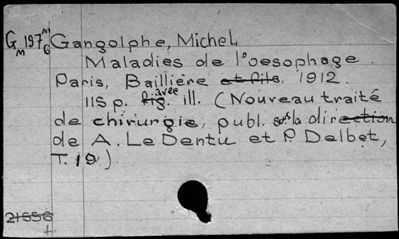 G 197 Gangolphe, Michel
Maladies de l'oesophage.
Paris, Baillière et fils, 1912.
115 p. avec fig. ill. (Nouveau traité
de chirurgie, publ. sous la direction
de A. Le Dentu et P. Delbet,
T. 19)
21556